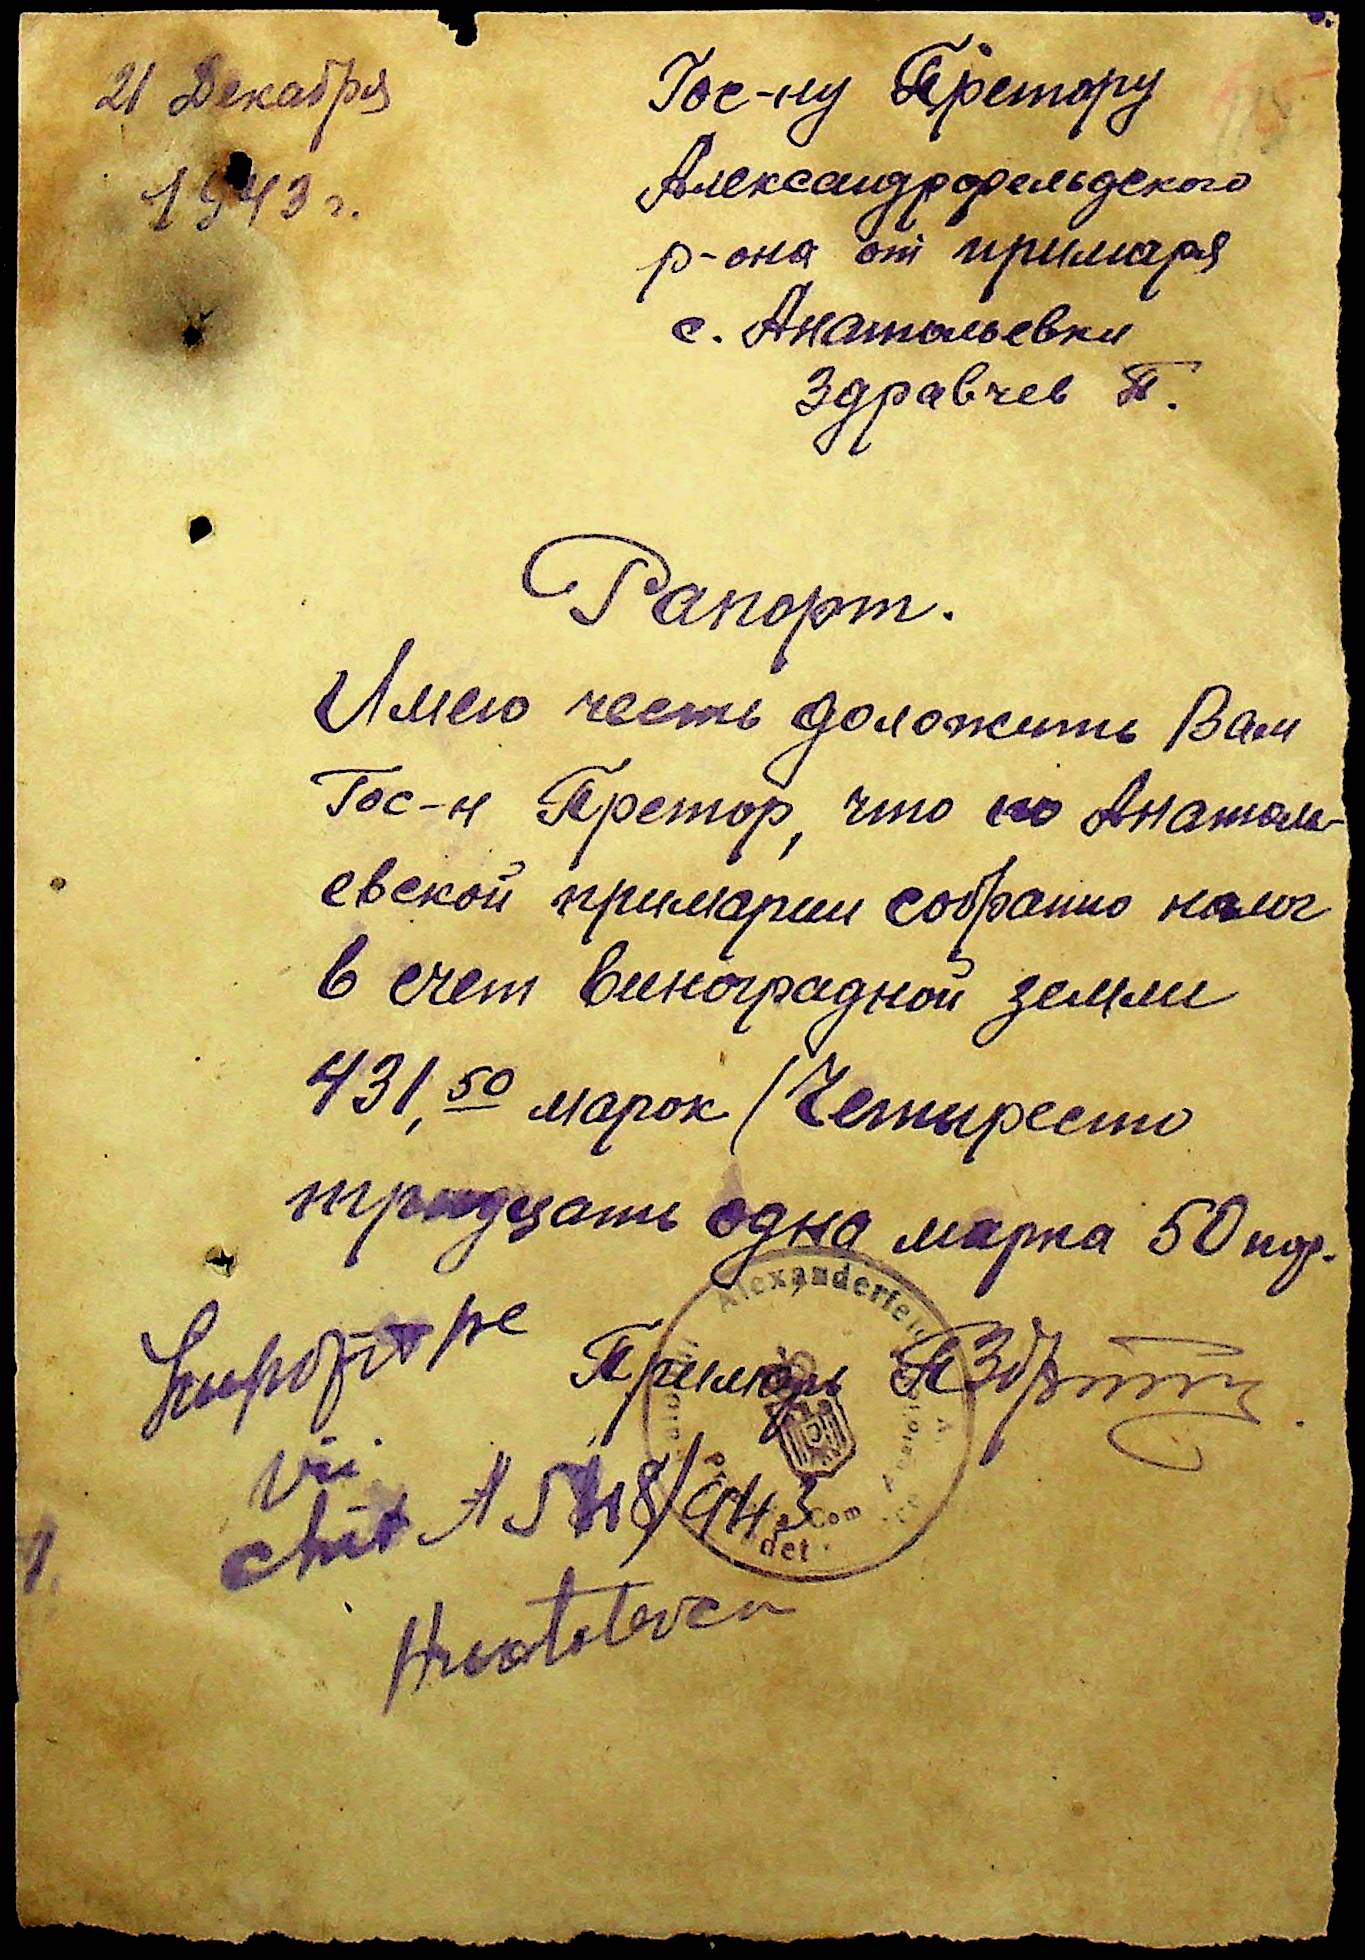 21 Декабря
1943 г.
Гос-ну Претору
Александрфельдского
р-она от примаря
с. Анатольевки
Здравчев П.
115
Рапорт.
Имею честь доложить Вам
Гос-н Претор, что по Анатоль-
евской примарии собранно налог
в счет виноградной земли
431,50 марок (Четыресто
тридцать одна марка 50 пф.
Примарь
Alexanderfeld
Com
det
vii
chit A 5418/943